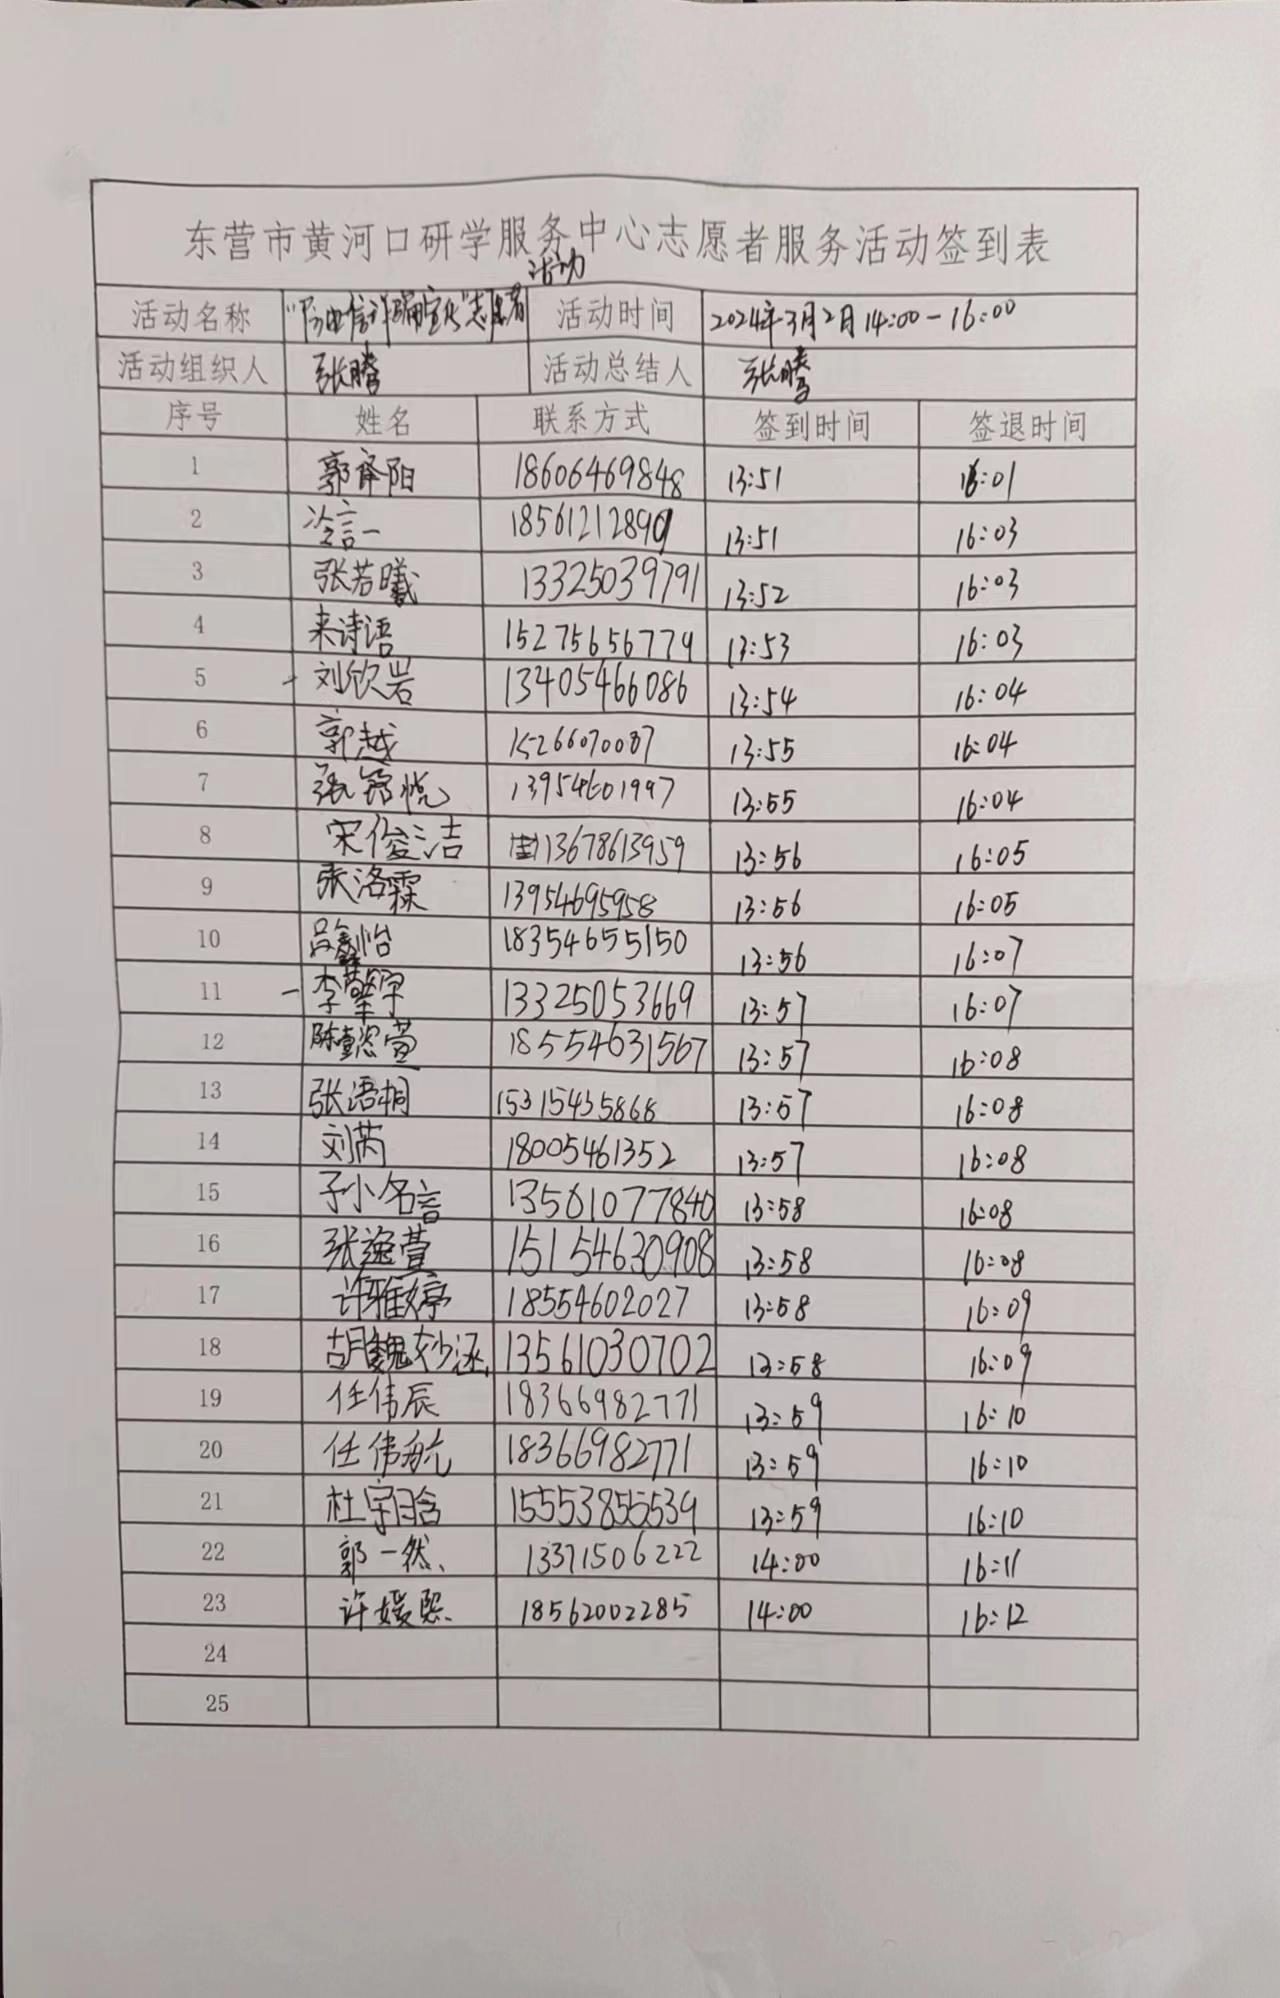 东营市黄河口研学服务中心志愿者服务活动签到表
活动
活动名称 "防电信诈骗宣传"志愿者 活动时间 2024年3月2月14:00-16:00
活动组织人 张腾 活动总结人 张腾
序号 姓名 联系方式 签到时间 签退时间
1 郭 阳 18606469848 13:51 16:01
2 冷言一 1856121289 13:51 16:03
3 张若曦 13325039791 13:52 16:03
4 来诗语 15275656779 13:53 16:03
5 刘欣岩 13405466086 13:54 16:04
6 郭越 15266070087 13:55 16:04
7 张铭悦 13954601997 13:55 16:04
8 宋俊洁 13678613959 13:56 16:05
9 张洛霖 13954695958 13:56 16:05
10 吕鑫怡 18354655150 13:56 16:07
11 李 宇 13325053669 13:57 16:07
12 陈懿萱 18554631567 13:57 16:08
13 张语桐 15315435868 13:57 16:08
14 刘芮 18005461352 13:57 16:08
15 子小名言 13561077840 13:58 16:08
16 张逸萱 15154630908 13:58 16:08
17 许雅婷 18554602027 13:58 16:09
18 胡魏妙涵 13561030702 13:58 16:09
19 任伟辰 18366982771 13:59 16:10
20 任伟航 18366982771 13:59 16:10
21 杜宇晗 15553855539 13:59 16:10
22 郭一然、 13371506222 14:00 16:11
23 许媛熙 18562002285 14:00 16:12
24
25